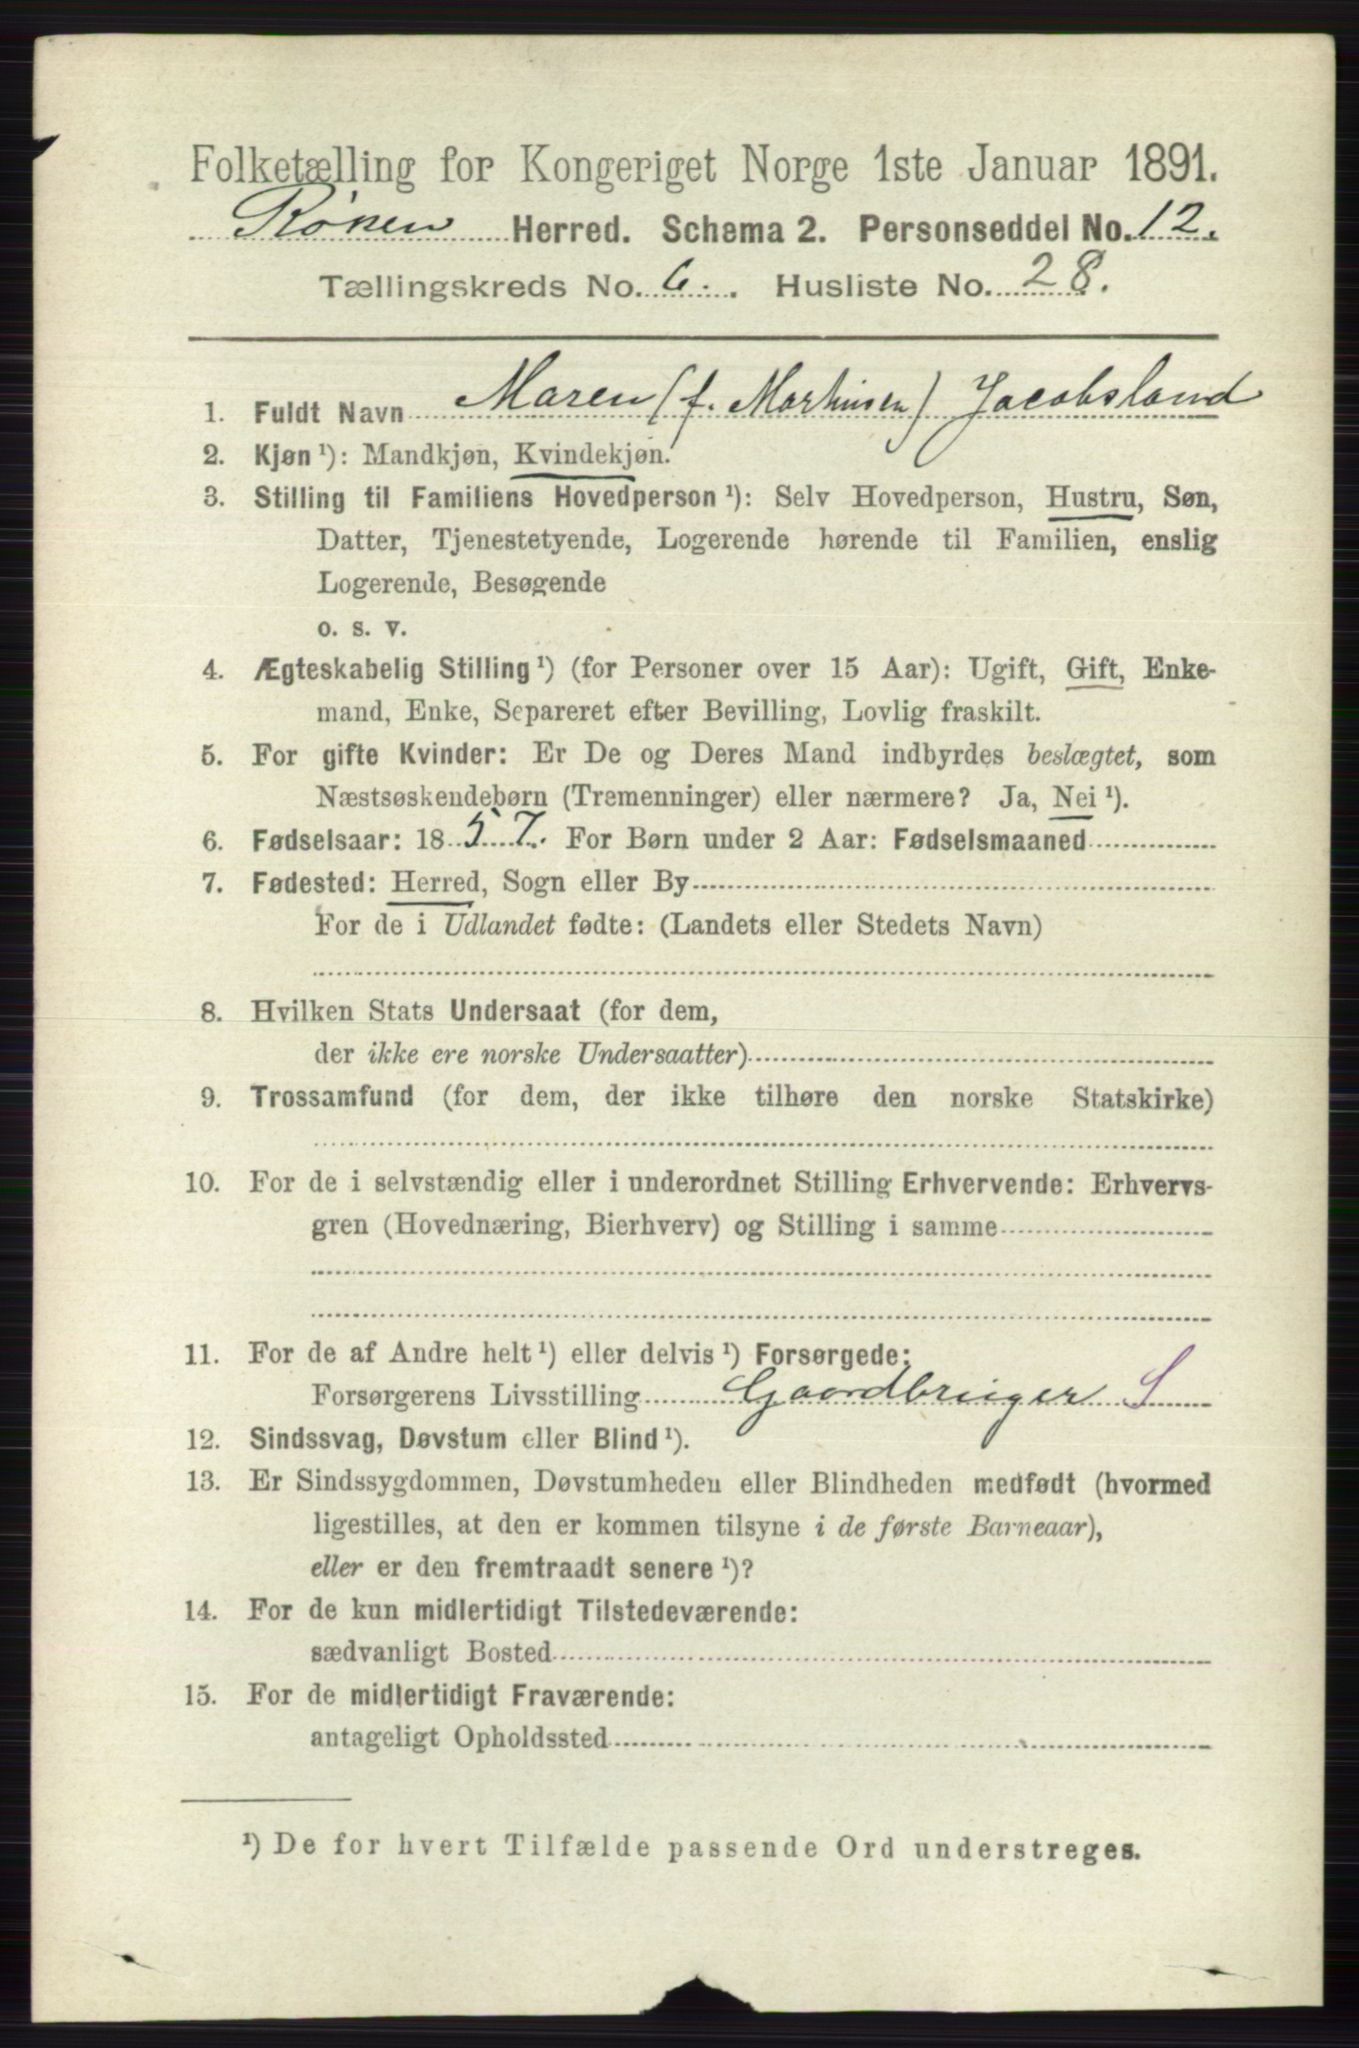 Folketælling for Kongeriget Norge 1ste Januar 1891.
Røken Herred. Schema 2. Personseddel No. 12.
Tællingskreds No. 6. Husliste No. 28.
1. Fuldt Navn Maren (f. Marthinsen) Jacobsland
2. Kjøn ¹): Mandkjøn, Kvindekjøn.
3. Stilling til Familiens Hovedperson ¹): Selv Hovedperson, Hustru, Søn,
Datter, Tjenestetyende, Logerende hørende til Familien, enslig
Logerende, Besøgende
o. s. v.
4. Ægteskabelig Stilling ¹) (for Personer over 15 Aar): Ugift, Gift, Enke-
mand, Enke, Separeret efter Bevilling, Lovlig fraskilt.
5. For gifte Kvinder: Er De og Deres Mand indbyrdes beslægtet, som
Næstsøskendebørn (Tremenninger) eller nærmere? Ja, Nei ¹).
6. Fødselsaar: 1857. For Børn under 2 Aar: Fødselsmaaned
7. Fødested: Herred, Sogn eller By
For de i Udlandet fødte: (Landets eller Stedets Navn)
8. Hvilken Stats Undersaat (for dem,
der ikke ere norske Undersaatter)
9. Trossamfund (for dem, der ikke tilhøre den norske Statskirke)
10. For de i selvstændig eller i underordnet Stilling Erhvervende: Erhvervs-
gren (Hovednæring, Bierhverv) og Stilling i samme
11. For de af Andre helt ¹) eller delvis ¹) Forsørgede:
Forsørgerens Livsstilling Gaardbruger S
12. Sindssvag, Døvstum eller Blind ¹).
13. Er Sindssygdommen, Døvstumheden eller Blindheden medfødt (hvormed
ligestilles, at den er kommen tilsyne i de første Barneaar),
eller er den fremtraadt senere ¹)?
14. For de kun midlertidigt Tilstedeværende:
sædvanligt Bosted
15. For de midlertidigt Fraværende:
antageligt Opholdssted
¹) De for hvert Tilfælde passende Ord understreges.